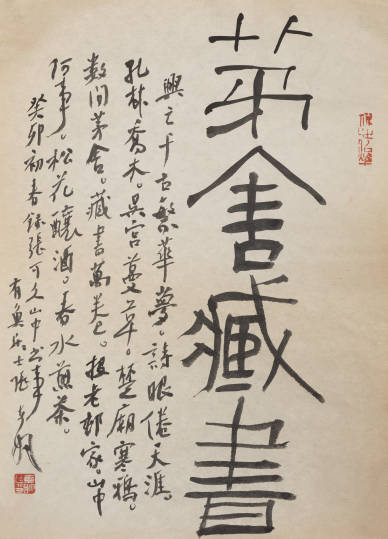 茅舍藏書
興亡千古繁華夢。詩眼倦天涯。
孔林喬木。吳宮蔓草。楚廟寒鴉。
數間茅舍。藏書萬卷。投老邨家。山中
何事。松花釀酒。春水煎茶。
癸卯初春錄張可久山中書事
有